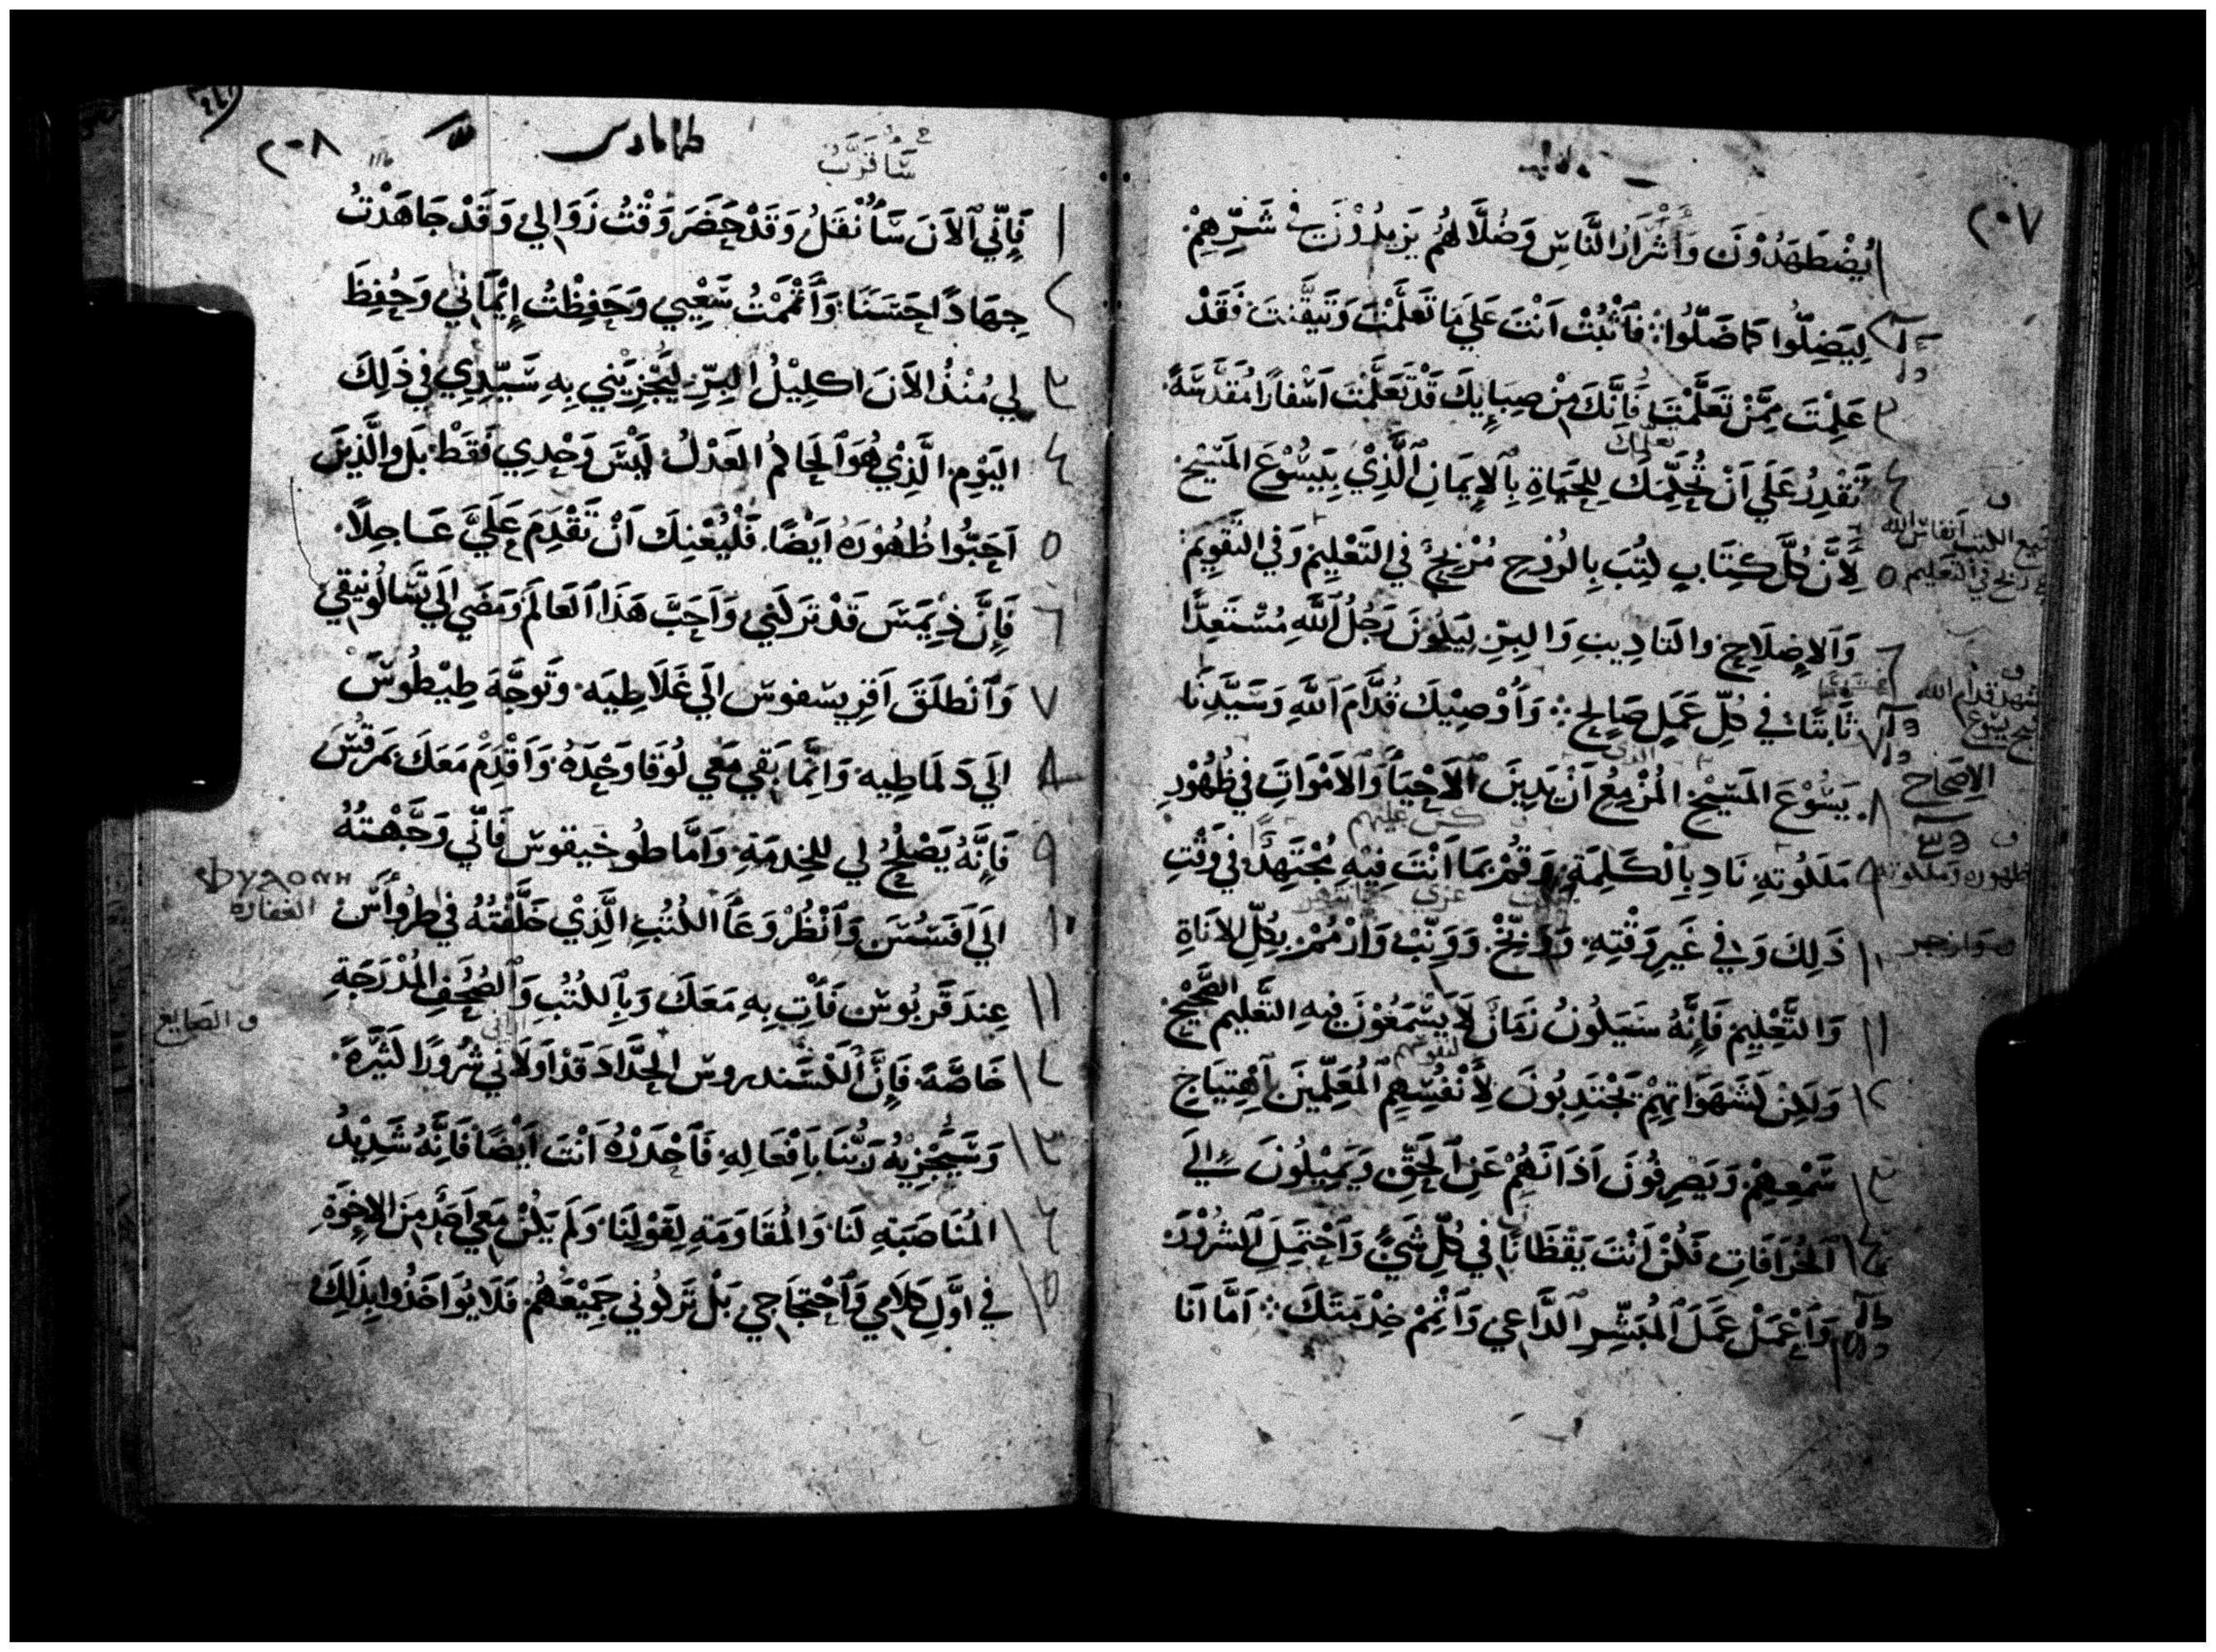 ٢٠٧
١ يُضْطَهَدُوْنَ وَأَشْرَارُ النَّاسِ وَضُلَّالهُم يَزِيدُوْنَ في شَرِّهِمْ.
٢ لِيَضِلُّوا كمَا ضَلُّوا: فَاَثْبُتْ اَنْتَ عَلَي مَا تَعَلَّمْتَ وَتَيَقَّنتَ فَقَدْ
٣ عَلِمْتَ مِمَّنْ تَعَلَّمْتَ فَاِنَّكَ مِنْ صِبَايِكَ قَدْ تَعَلَّمْتَ اَسْفارًا مُقَدَّسَةً.
٤ تَقْدِرُ عَلَي اَنْ تُحَكِّمَكَ لِلحَيَاةِ بِاَلاِيمَانِ اَلَّذِيْ بِيَسُّوْعَ المَسِيْحِ
٥ لِاَنَّ كُلَّ كِتَابٍ كُتِبَ بِالرُوْحِ مُرْبِحٌ في التَعْلِيْمِ وَفي التَقْوِيْمِ
٦ وَاَلاِصْلَاحِ والتَادِيبِ وَالبِرِّ لِيَكُوْنَ رَجُلُ اَللَّهِ مُسْتَعِدًّا
٧ ثَابتًا في كُلِّ عَمَلٍ صَالِحٍ ܀ وَأُوْصِيْكَ قُدَّامَ اَللَّهِ وَسَيِّدِنَا
٨ يَسُّوْعَ المَسِيْحِ المُزْمِعِ اَنْ يَدِيْنَ اَلاَحْيَاَ وَاَلاَمْوَاتَ في ظُهُوْرِ
٩ مَلَكُوْتهِ نَادِ بِاَلْكَلِمَةِ وَقُمْ بمَا اَنْتَ فِيْهِ مُجْتَهِدًا في وَقْتِ
١٠ ذَلِكَ وَفي غَيرِ وَقْتِهِ. وَوَبِّخْ. وَرَتِّبْ وَارْسُمْ بِكُلِّ الاَنَاةِ
١١ وَالتَّعْلِيْمِ فَاِنَّهُ سَيَكُوْنُ زَمَانٌ لَا يَسْمَعُوْنَ فِيْهِ التَعْلِيم الصَّحِيْحَ
١٢ وَلَكِنْ لَشَهَوَاتِهِمْ يَجْتَذِبُونَ لِاَنْفُسِهِمِ اَلمُعَلِّمِيْنَ اَهْتِيَاجِ
١٣ سَمْعِهِمْ وَيَصْرِفُوْنَ اَذَانَهُمْ عَنِ اَلحَقِّ وَيَمِيْلُوْنَ اِلَي
١٤ اَلخُرَافَاتِ فَكُنْ اَنْتَ يَقْظَانًا في كُلِّ شَيْءٍ وَاَحْتَمِلِ اَلشُرُوْرَ
١٥ وَاَعْمَلْ عَمَلَ اَلمُبَشِّرِ اَلدَّاعِي وَاَتْمِمْ خِدْمَتَكَ ܀ اَمَّا اَنَا
الاصحاح
٢٠٨
سَأُقَرَّبُ
١ فَاِنّي اَلاَنَ سَأُنْقَلُ وَقَدْ حَضَرَ وَقْتُ زَوَالي وَقَدْ جَاهَدْتُ
٢ جِهَادًا حَسَنًا: وَاَتْمَمْتُ سَعْيِي وَحَفِظْتُ اِيْمَاني وَحُفِظَ
٣ لي مُنْذُ الاَنَ اكلِيْلُ البِرِّ ليَجْزِيَني بِهِ سَيِّدِي في ذَلِكَ
٤ اليَوْمِ الَّذِيْ هُوَ اَلحَاكمُ العَدْلُ لَيْسَ وَحْدِي فَقَطْ بَل والَّذِيْنَ
٥ اَحَبُّوا ظُهُوْرَهُ اَيْضًا. فَلْيُعْنِكَ اَنْ تَقْدِمَ عَلَيَّ عَاجِلاً.
٦ فَاِنَّ ذِيْمَسَ قَدْ تَرَكَنِي وَاَحَبَّ هَذَا اَلعَالَمَ وَمَضَي اِلَي تَسَّالُوْنِيقِي
٧ وَاَنْطَلَقَ اَقرِيسفوس الَي غَلَاطِيَه. وَتَوَجَّهَ طِيْطُوسُ
٨ الَي دَلمَاطِيه وَاِنَّمَا بَقي مَعي لُوقَا وَحْدَهُ. وَاَقْدِمْ مَعَكَ بمَرقُسَ
٩ فَاِنَّهُ يَصْلُحُ لي للخِدمَةِ وَامَّا طُوخيقوس فَاِنّي وَجَّهْتُهُ
١٠ الَي اَفَسُسَ وَاَنْظُرْ وِعَاَ الكُتُبِ الَّذِيْ خَلَّفْتُهُ في طرُوَاسَ
١١ عِندَ قَربُوس فَأْتِ بِهِ مَعَكَ وَبِاَلكُتُبِ وَاَلصُحُفِ المُدْرَجَةِ
١٢ خَاصَّةً فَاِنَّ اَلكسَندروس الحَدَّادَ قَدْ اَوْلَاني شُرُورًا كَثِيْرَةً.
١٣ وَسَيَجْزِيْهُ رَبُّنَا بِاَفْعَالِهِ فَاَحْذَرْهُ اَنْتَ اَيْضًا فَاِنَّهُ شَدِيْدُ
١٤ المُنَاصَبَةِ لَنَا وَالمُقَاوَمَةِ لِقَوْلِنَا وَلَمْ يَكُنْ مَعِي اَحَدٌ مِنَ الاِخْوَةِ
١٥ في اوَّلِ كَلَامِي وَاَحْتِجَاجِي بَلْ تَرَكُوْني جَمِيْعُهُمْ. فَلَا يُوَاخَذُوا بِذَلِكَ
الغفاره
ف الصَايغ